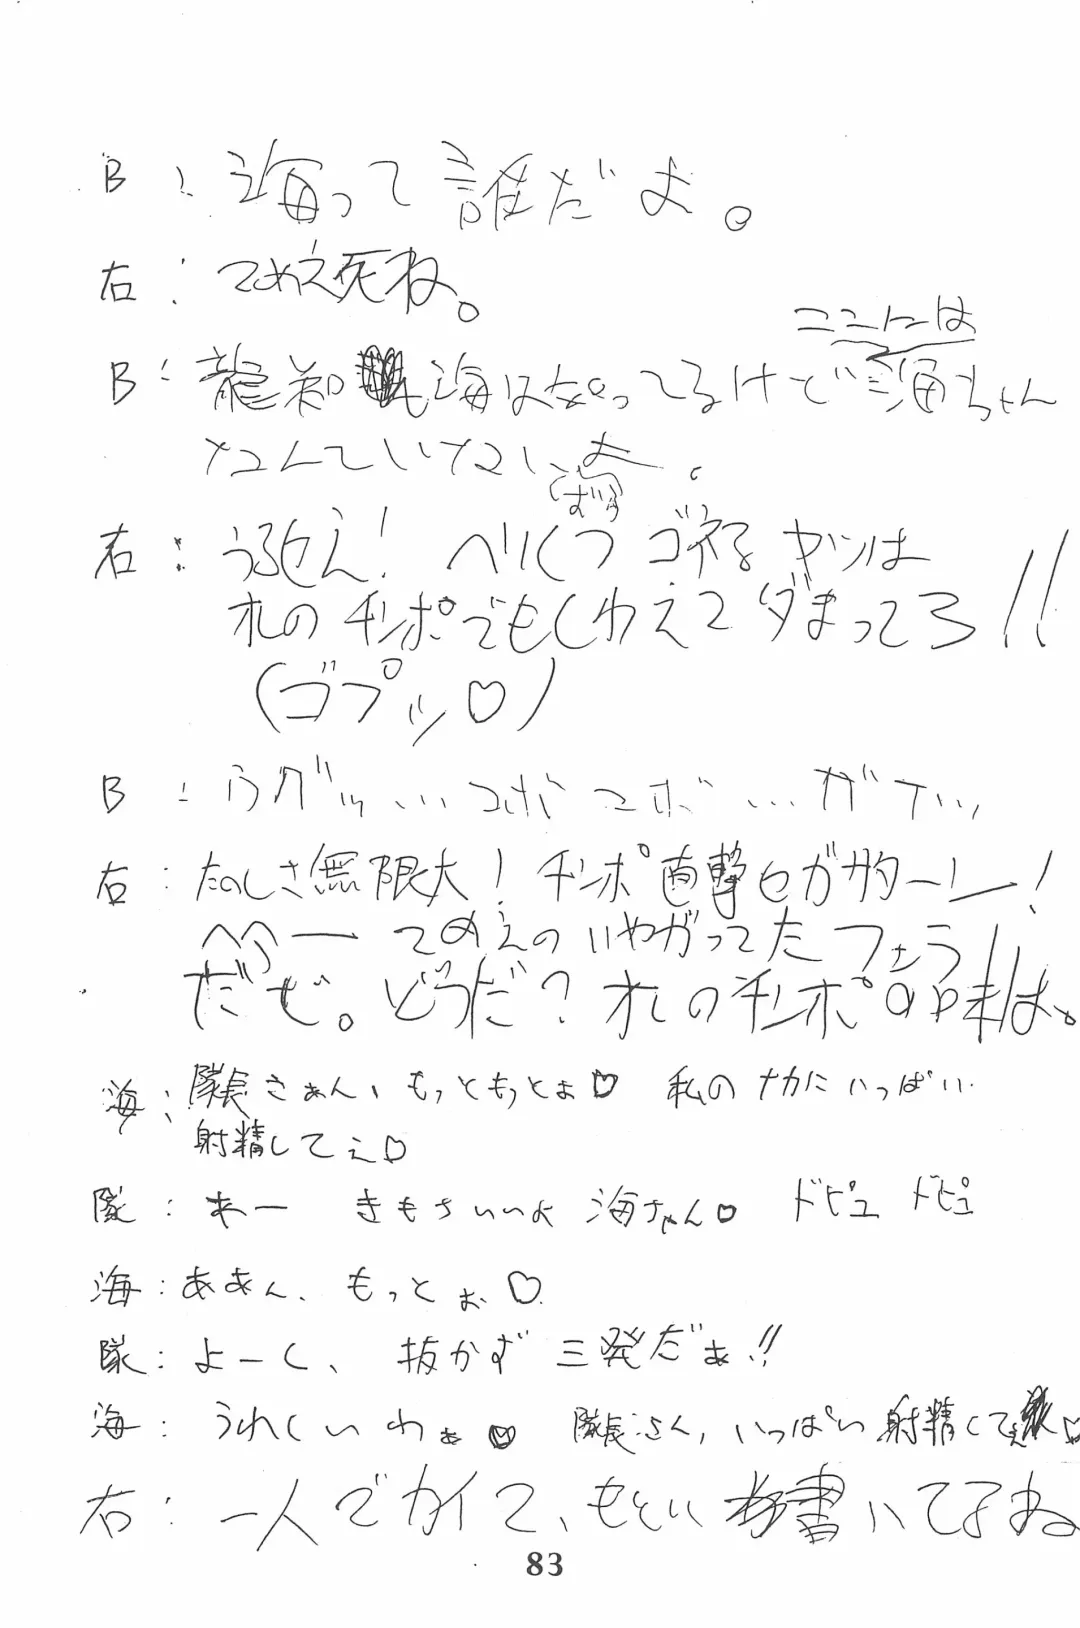 B：海って誰だよ。
右：てめえ死ね。
ここには
B：海は ってるけど 海ちゃん
なんていないよ。
右：うるせえ！ ヘりくつ ゴネる ヤツは
オレの チンポでもくわえて ダまってろ!!
(ゴプッ♡)
B：ウグッ…
右：たのしさ無限大！チンポ直撃セガサターン！
へへー てめえの いやがってた フェラ
だぜ。どうだ？オレのチンポの味は。
海：隊長さぁん、もっともっとぉ♡ 私のナカに いっぱい
射精してぇ♡
隊： きもちいいよ 海ちゃん♡ ドピュ ドピュ
海：ああん、もっとぉ♡
隊：よーし、抜かず三発だぁ!!
海：うれしいわぁ♡ 隊長さん、いっぱい射精してぇ♡
右：一人でカイて、もとい 書いてるよね
83